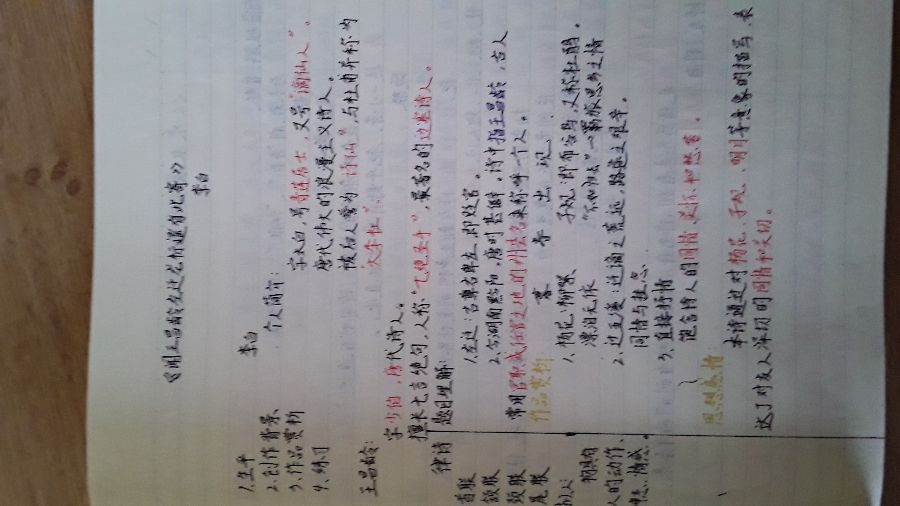 《闻王昌龄左迁龙标遥有此寄》
李白
1.生平
2.创作背景
3.作品赏析
4.练习
李白
个人简介:
字太白,号青莲居士,又号"谪仙人"。
唐代伟大的浪漫主义诗人。
被后人誉为"诗仙",与杜甫并称为
"大李杜"。
王昌龄:
字少伯,唐代诗人。
擅长七言绝句,人称"七绝圣手",最著名的边塞诗人。
律诗
首联
颔联
颈联
尾联
题目理解:
1.左迁:古尊右卑左,即贬官。
2.
唐时甚僻,诗中指王昌龄,古人
常用官职或任官之地的州县名来称呼一个人。
作品赏析:
1.杨花:柳絮
漂泊无依
子规:即布谷鸟,又称杜鹃
"不如归去"—羁旅思乡之情
2.过五溪:过谪之荒远,路途之艰辛。
同情与挂念
3.直接抒情
饱含诗人的同情、哀怜和愁苦。
人的动作、
情感。
思想感情:
本诗通过对杨花、子规、明月等意象的描写,表
达了对友人深切的同情和关切。